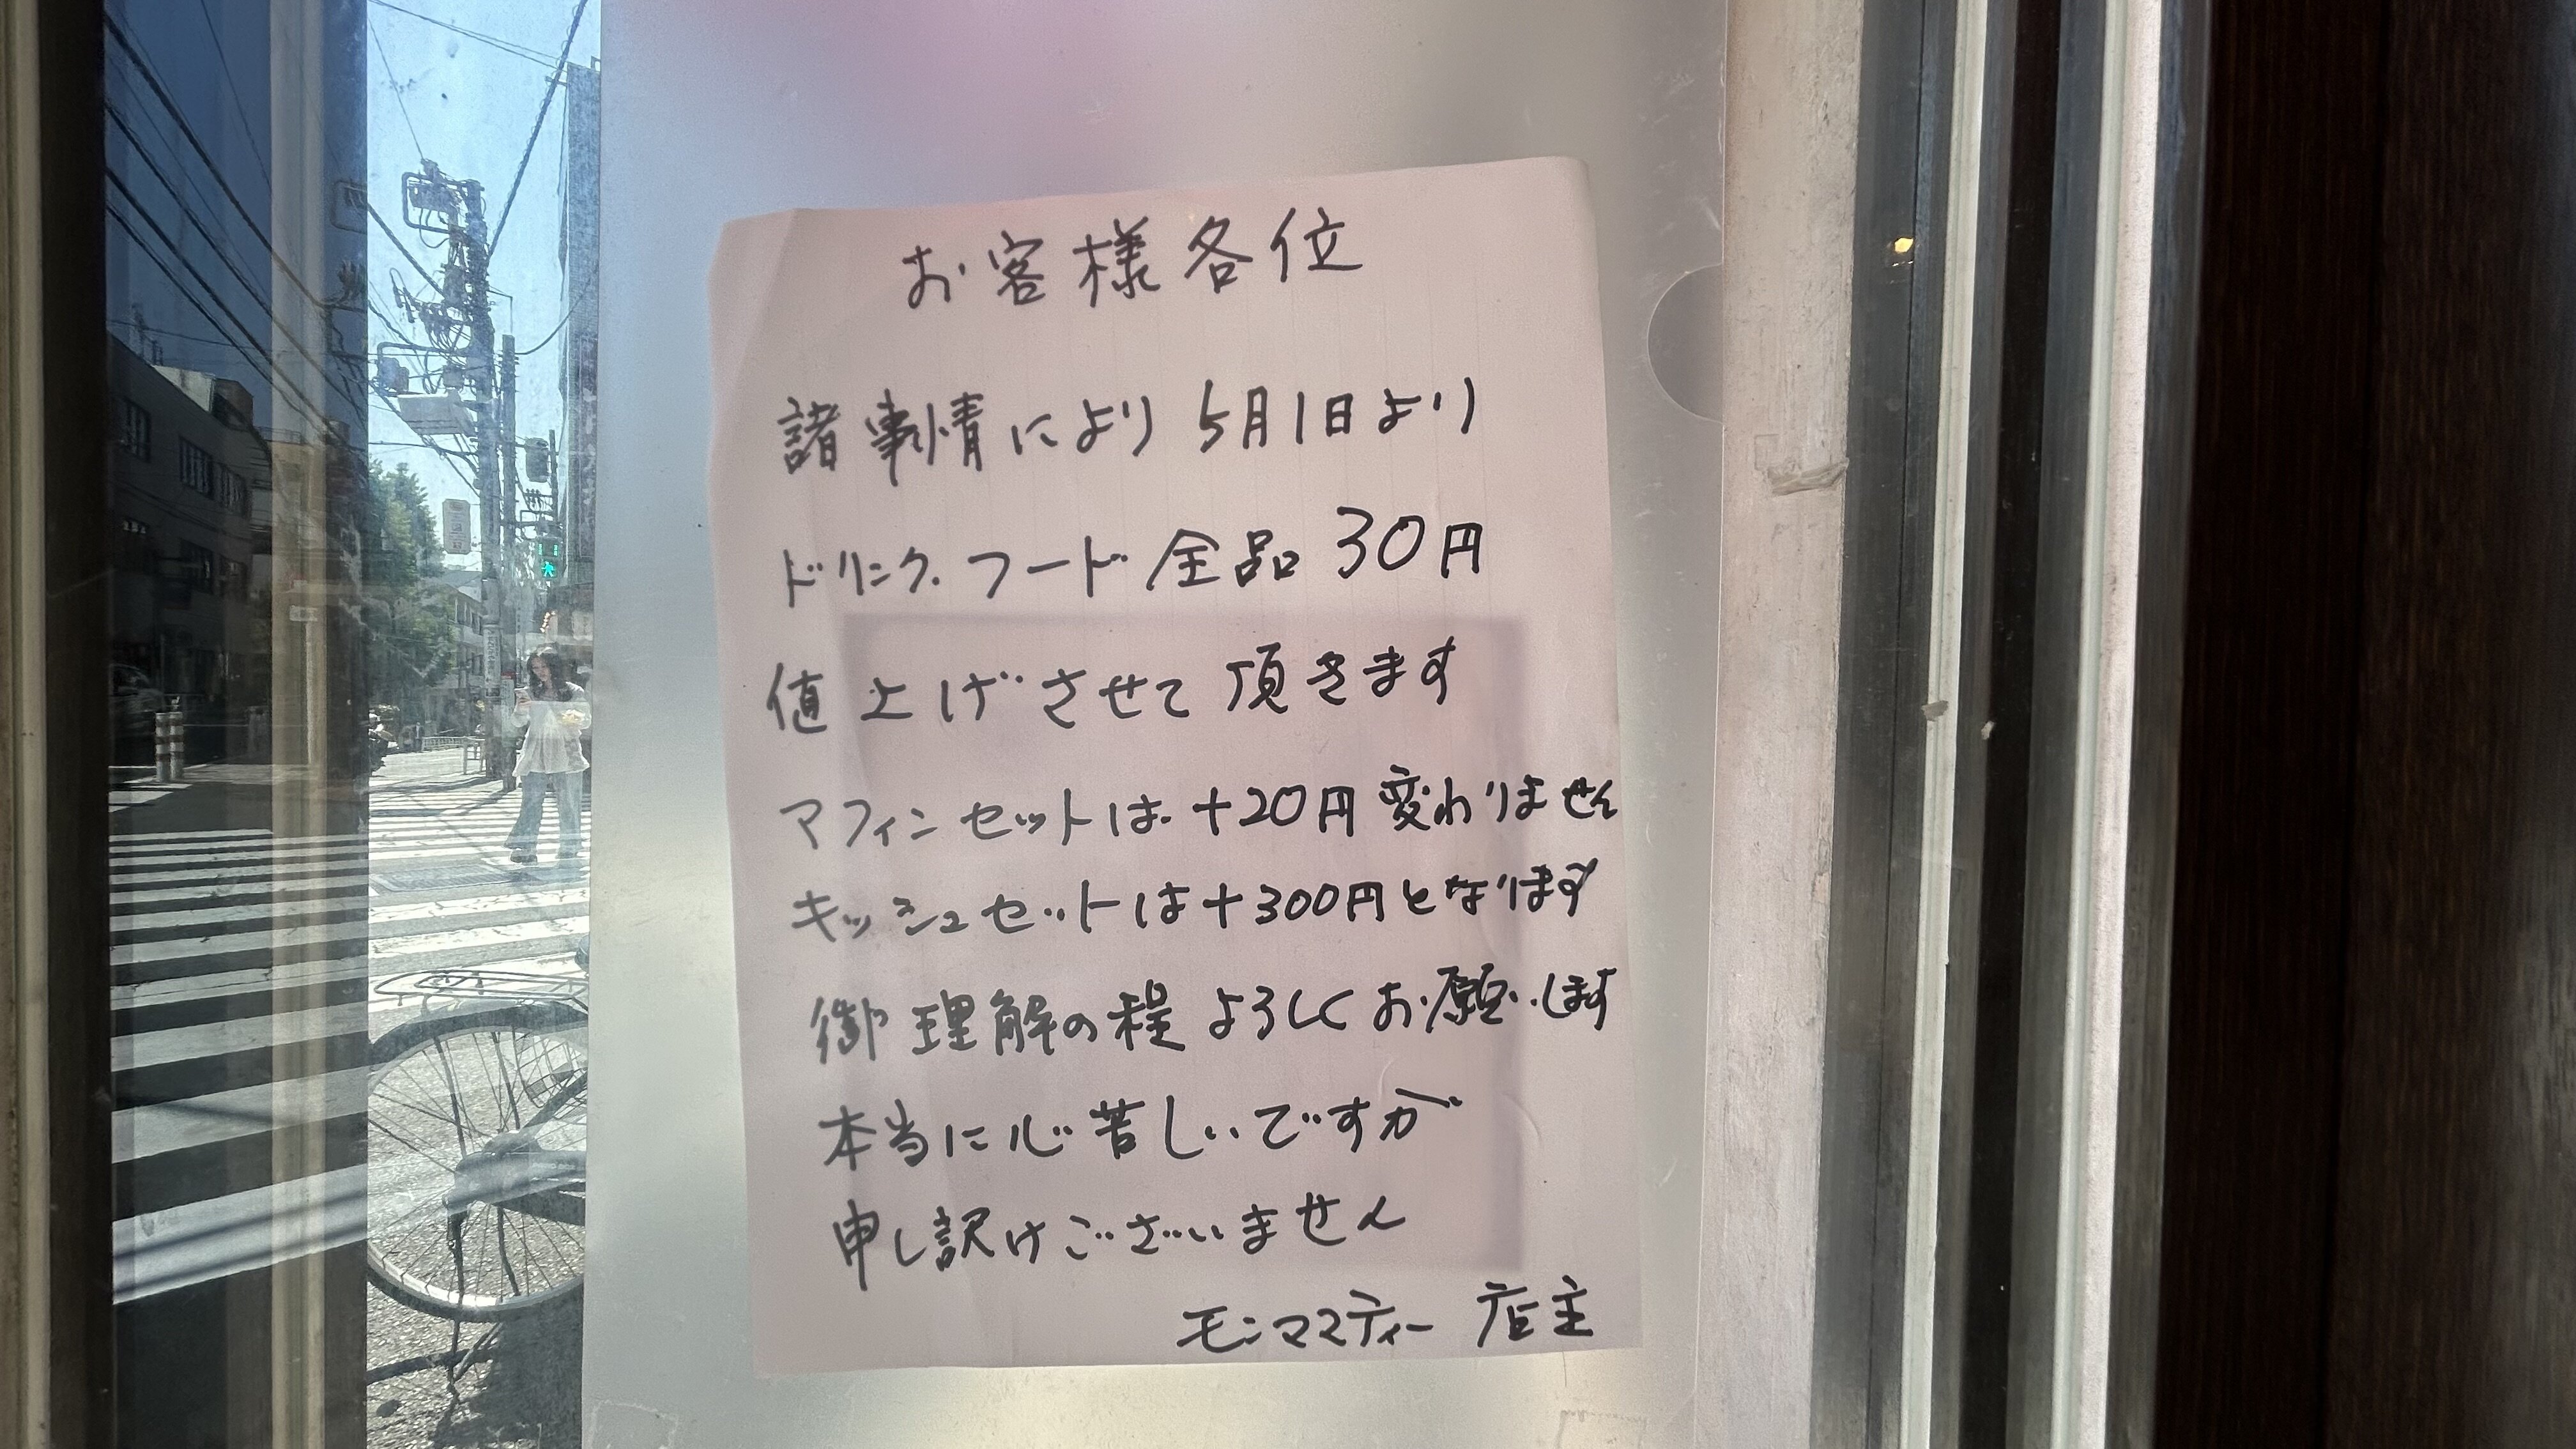 お客様各位
諸事情により 5月1日より
ドリンク.フード 全品 30円
値上げさせて頂きます
マフィンセットは.+20円変わりません
キッシュセットは+300円となります
御理解の程よろしくお願いします
本当に心苦しいですが
申し訳けございません
モンママティー 店主